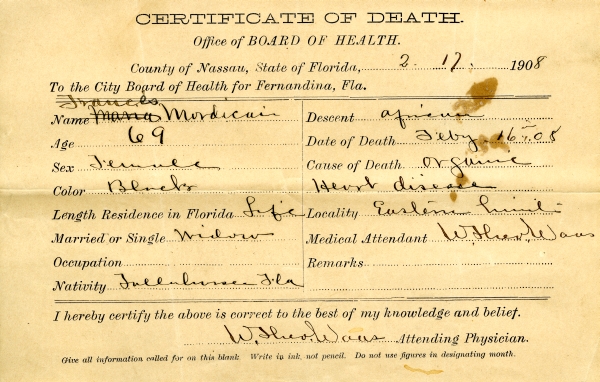 CERTIFICATE OF DEATH.
Office of BOARD OF HEALTH.
County of Nassau, State of Florida, 2 - 17. 1908
To the City Board of Health for Fernandina, Fla.
Francis
Name Maria Mordicai
Age 69
Sex Female
Color Black
Length Residence in Florida Life
Married or Single Widow
Occupation
Nativity Tallahassee Fla
Descent African
Date of Death Feby 16th 08
Cause of Death Organic
Heart disease
Locality Eastern limit
Medical Attendant W. Theo. Waas
Remarks
I hereby certify the above is correct to the best of my knowledge and belief.
W. Theo. Waas Attending Physician.
Give all information called for on this blank. Write in ink, not pencil. Do not use figures in designating month.